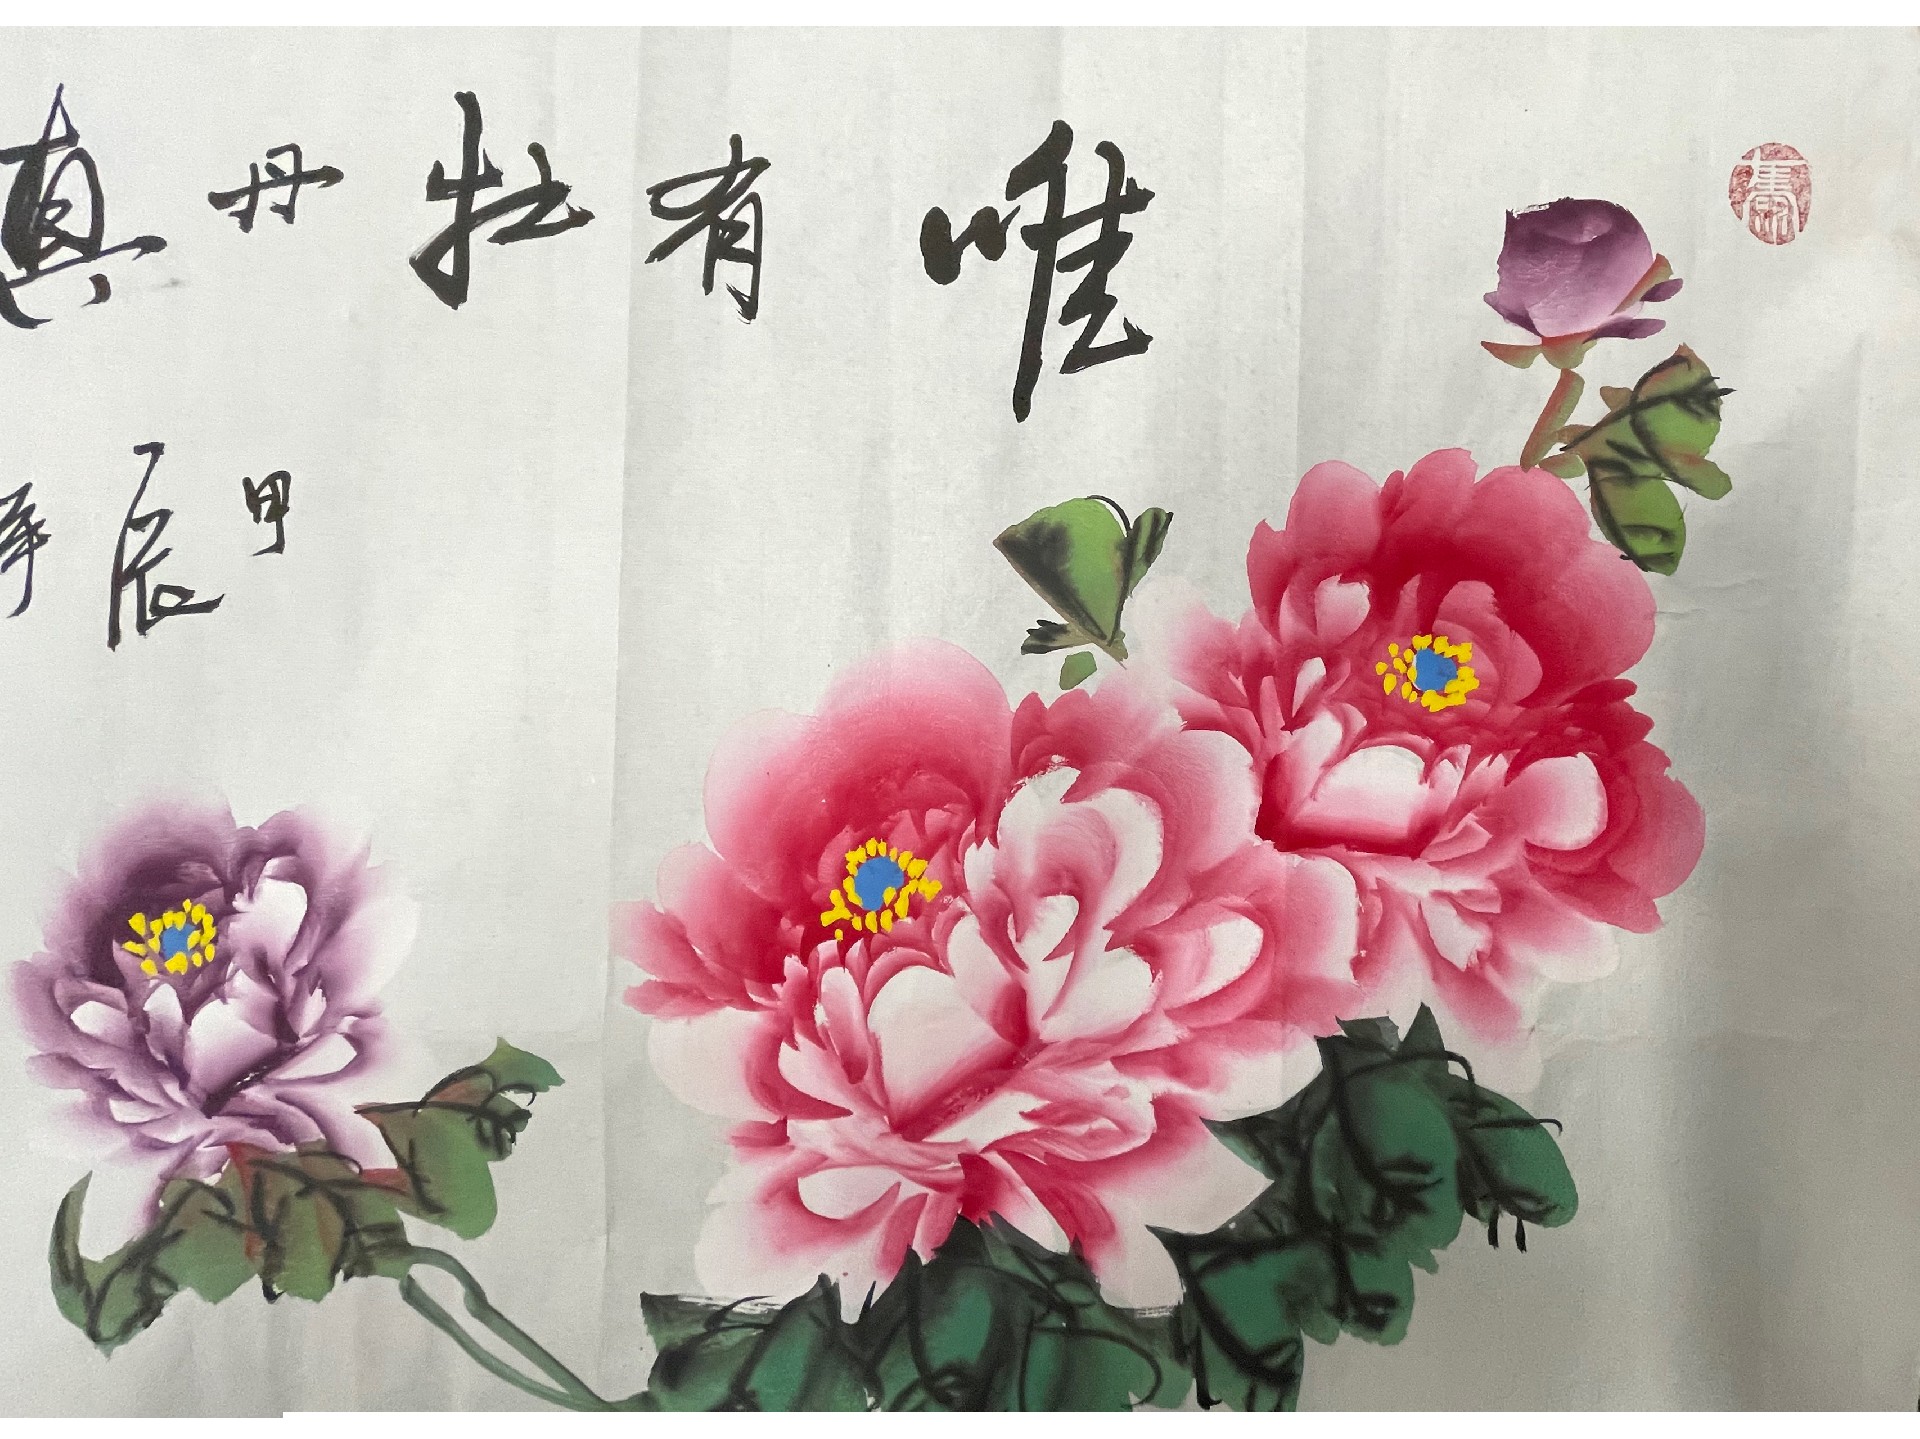 唯有牡丹真
甲辰年